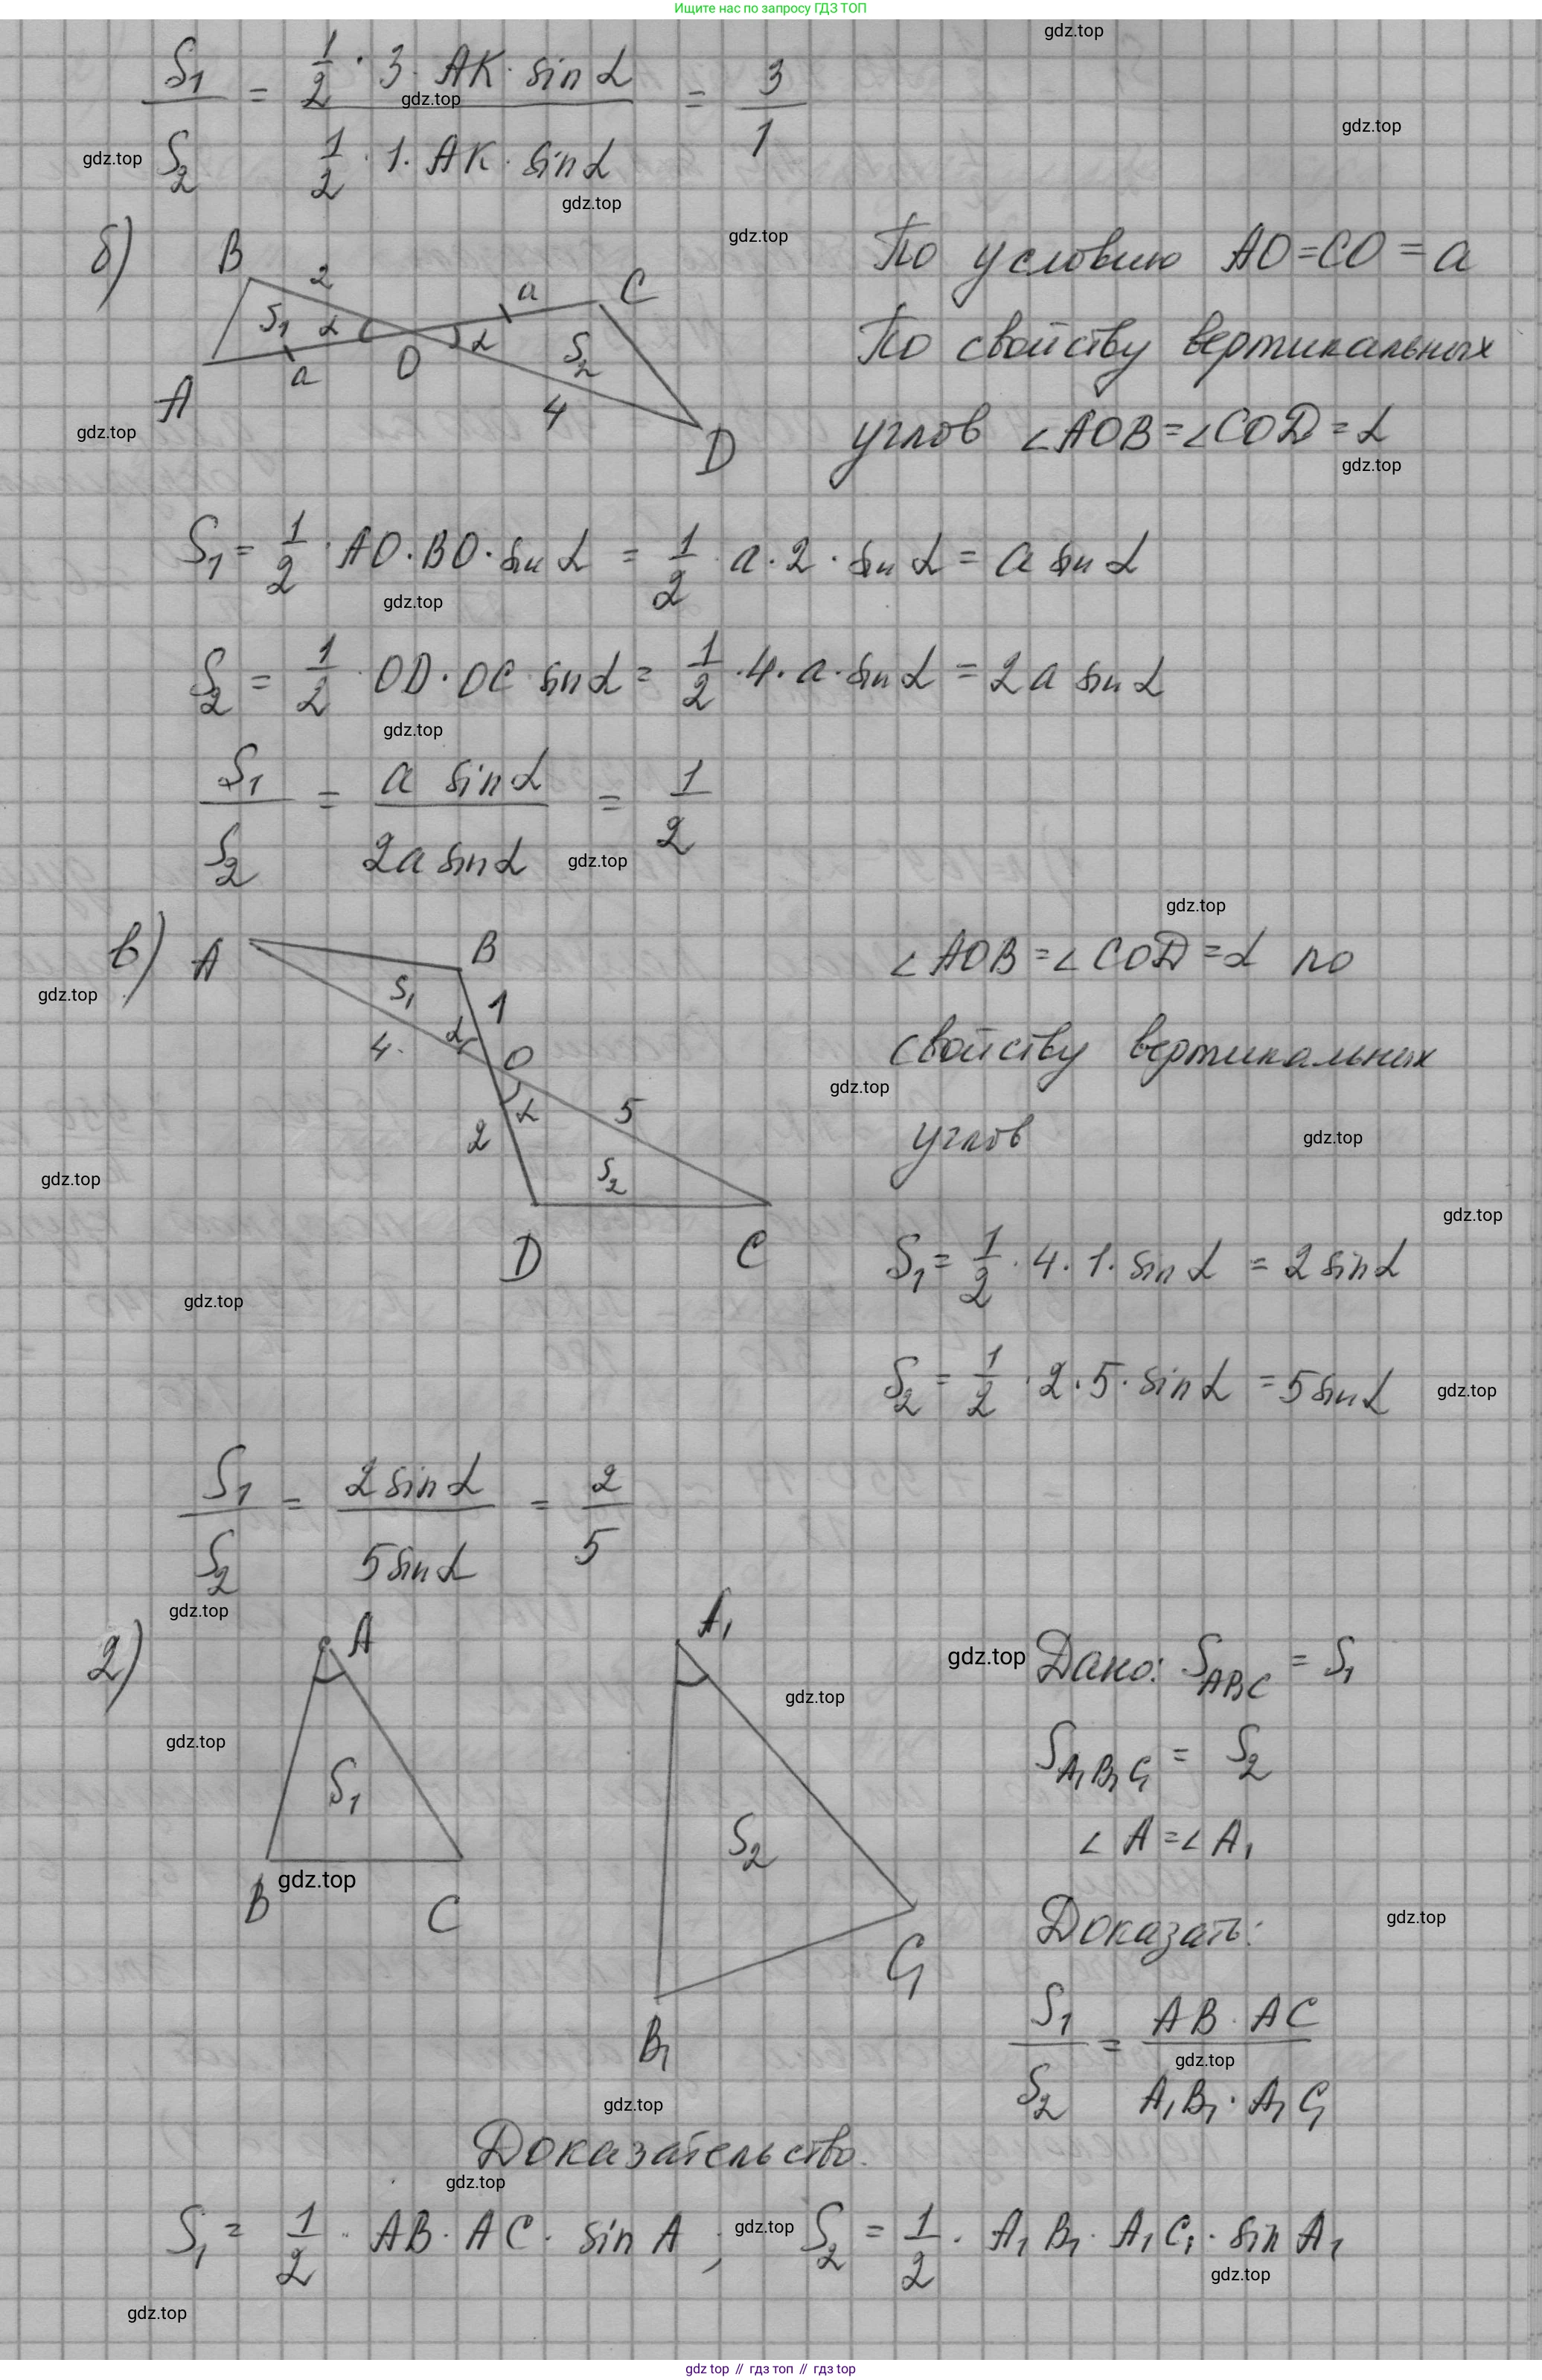 Ищите нас по запросу ГДЗ ТОП
gdz.top
S₁/S₂ = (1/2 · 3 · AK · sin α)/(1/2 · 1 · AK · sin α) = 3/1
gdz.top
gdz.top
gdz.top
gdz.top
gdz.top
б) B 2 a C
S₁ α α S₂
A a O 4 D
По условию AO=CO=a
По свойству вертикальных
углов ∠AOB=∠COD=α
gdz.top
gdz.top
S₁ = 1/2 · AO · BO · sin α = 1/2 · a · 2 · sin α = a sin α
gdz.top
S₂ = 1/2 · OD · OC sin α = 1/2 · 4 · a · sin α = 2a sin α
gdz.top
S₁/S₂ = a sin α/2a sin α = 1/2
gdz.top
gdz.top
в) A B
S₁ 1
4 α O
2 α 5
S₂
D C
∠AOB=∠COD=α по
свойству вертикальных
углов
gdz.top
gdz.top
gdz.top
gdz.top
gdz.top
gdz.top
S₁ = 1/2 · 4 · 1 · sin α = 2 sin α
S₂ = 1/2 · 2 · 5 · sin α = 5 sin α
gdz.top
S₁/S₂ = 2 sin α/5 sin α = 2/5
gdz.top
2) A A₁
S₁ S₂
B C
B₁ C₁
gdz.top
gdz.top
gdz.top
gdz.top
Дано: S_ABC = S₁
S_A₁B₁C₁ = S₂
∠A=∠A₁
Доказать:
gdz.top
S₁/S₂ = AB · AC/A₁B₁ · A₁C₁
gdz.top
gdz.top
Доказательство.
gdz.top
S₁ = 1/2 · AB · AC · sin A ; S₂ = 1/2 · A₁B₁ · A₁C₁ · sin A₁
gdz.top
gdz.top
gdz.top
gdz top // гдз топ // гдз top